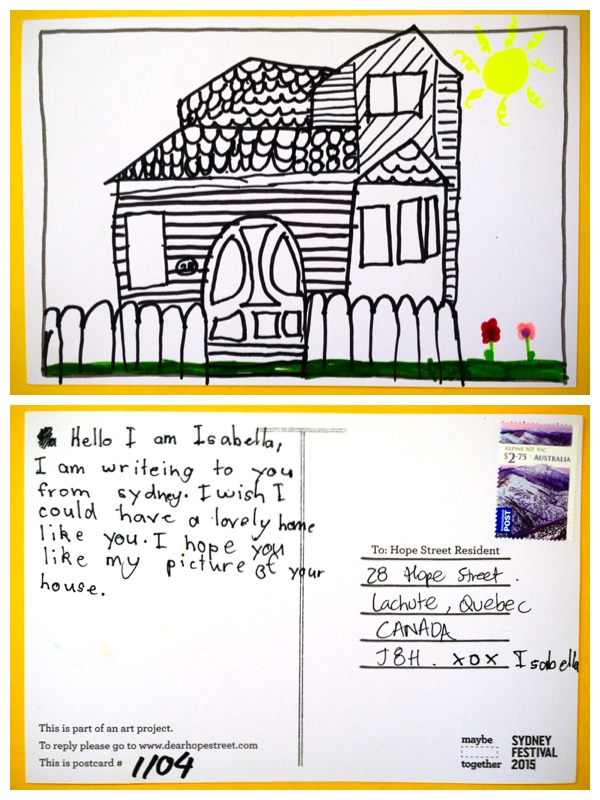 28
Hello I am Isabella,
I am writeing to you
from sydney. I wish I
could have a lovely home
like you. I hope you
like my picture of your
house.
ALPINE NP, VIC
$2.75 AUSTRALIA
POST
To: Hope Street Resident
28 Hope Street.
Lachute, Quebec
CANADA
J8H. XOX Isabella
This is part of an art project.
To reply please go to www.dearhopestreet.com
This is postcard # 1104
maybe
together
SYDNEY
FESTIVAL
2015